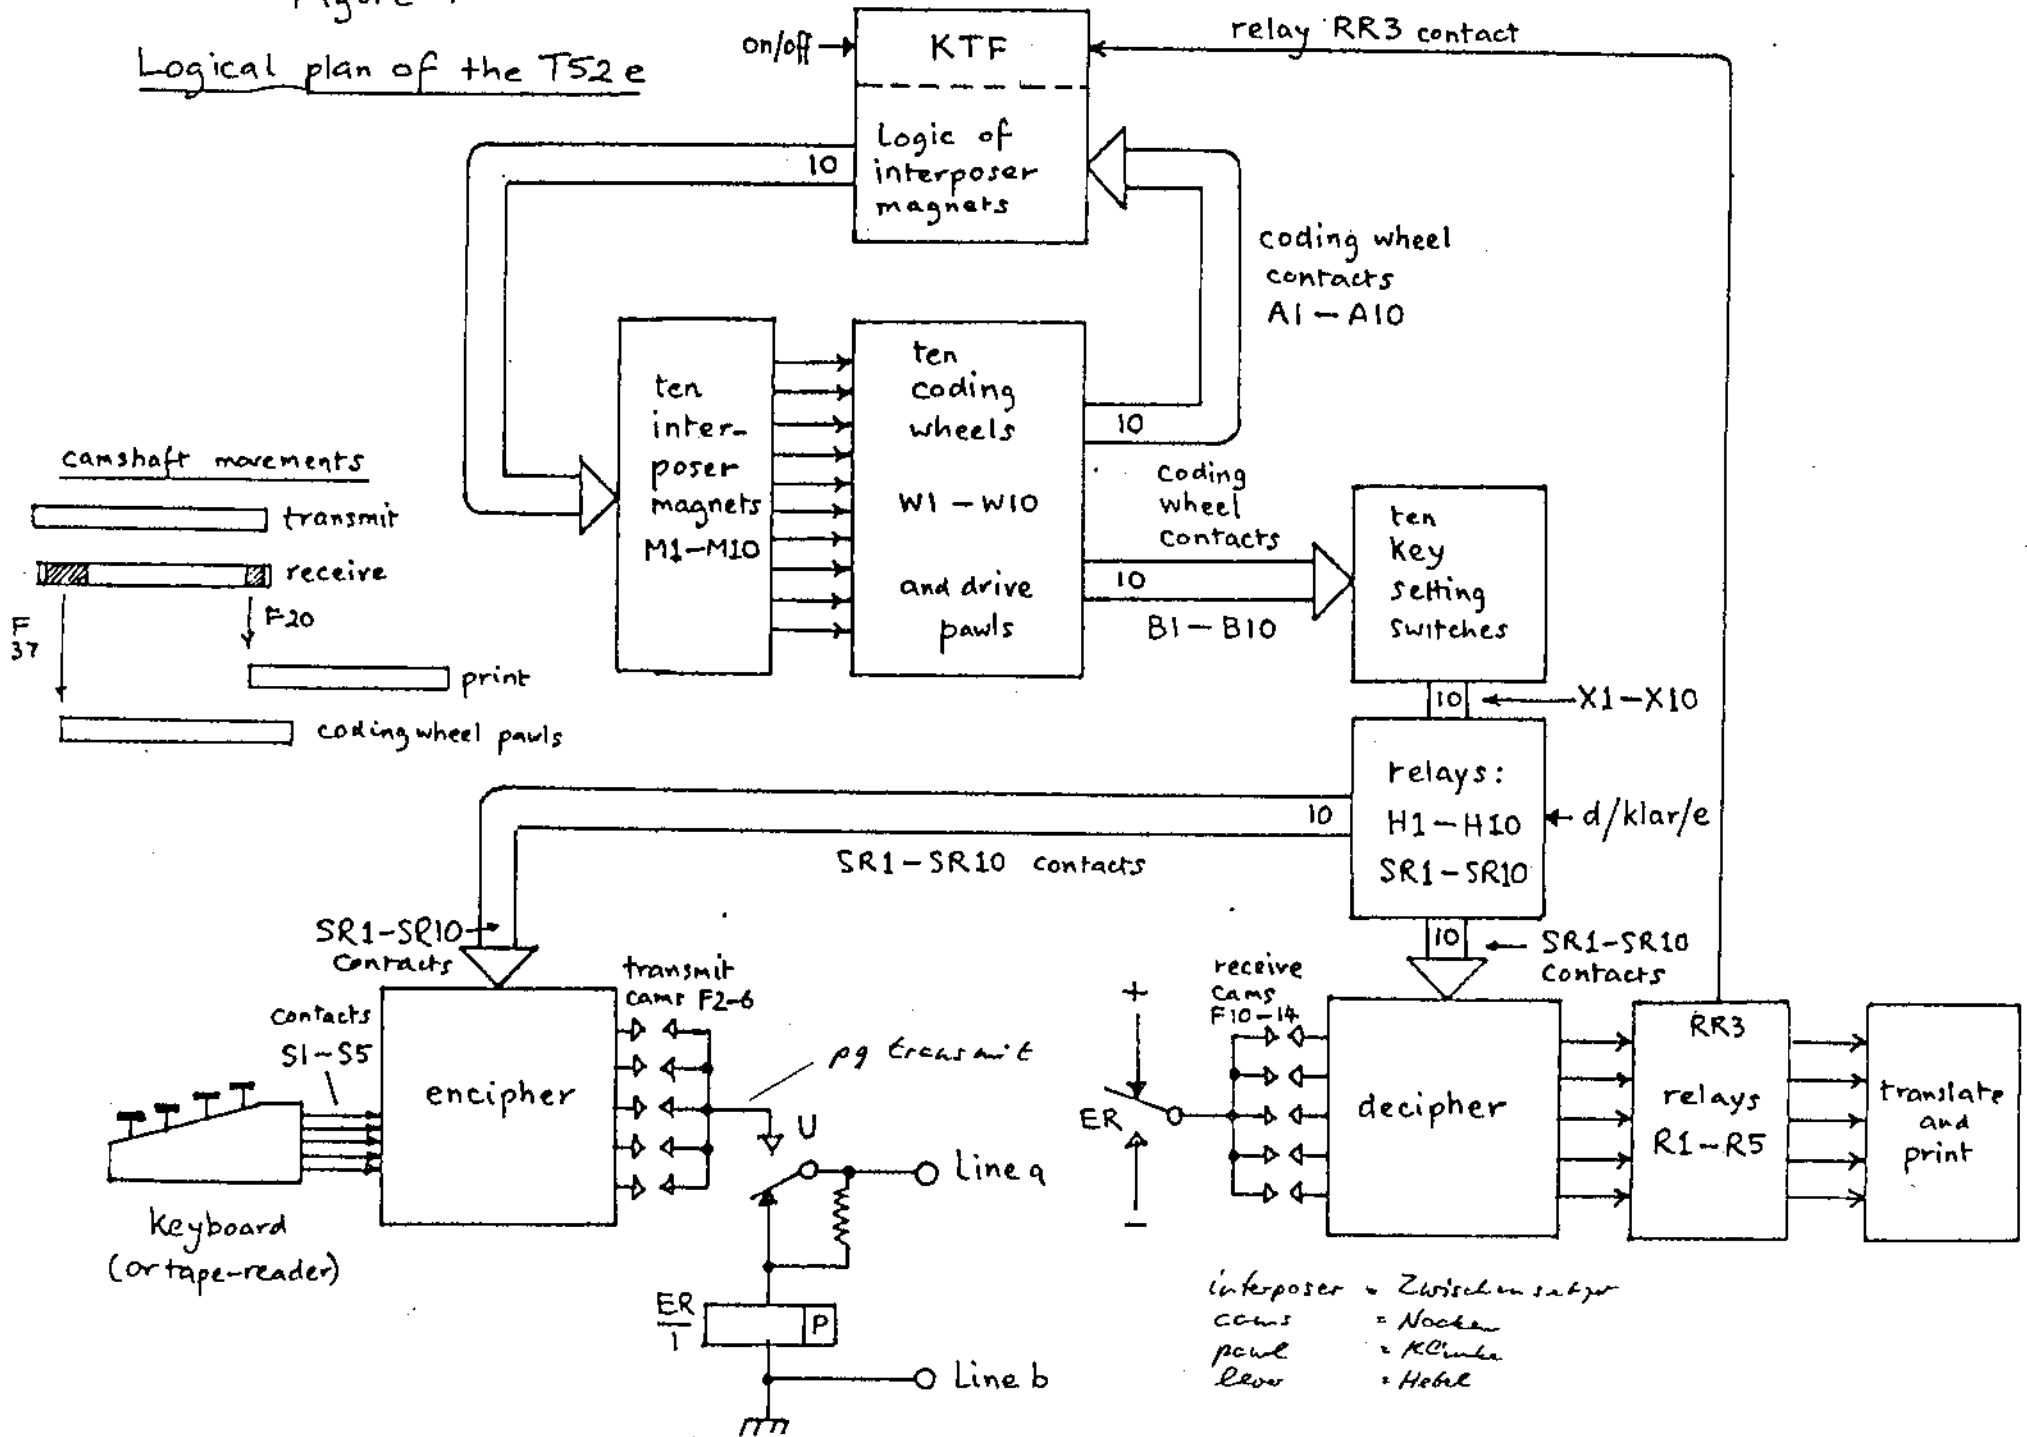 Figure
Logical plan of the T52e
on/off
KTF
relay RR3 contact
Logic of
interposer
magnets
10
coding wheel
contacts
A1 – A10
ten
inter-
poser
magnets
M1–M10
ten
coding
wheels
W1 – W10
and drive
pawls
10
coding
wheel
contacts
10
B1 – B10
ten
key
setting
switches
10
X1–X10
camshaft movements
transmit
receive
F
37
F20
print
coding wheel pawls
relays:
H1–H10
SR1–SR10
d/klar/e
10
SR1–SR10 contacts
SR1–SR10
contacts
10
SR1–SR10
contacts
contacts
S1–S5
encipher
transmit
cams F2-6
pg transmit
U
Line a
keyboard
(or tape-reader)
ER
1
P
Line b
receive
cams
F10–14
+
ER
–
decipher
RR3
relays
R1–R5
translate
and
print
interposer = Zwischensetzer
cams = Nocken
pawl = Klinke
lever = Hebel